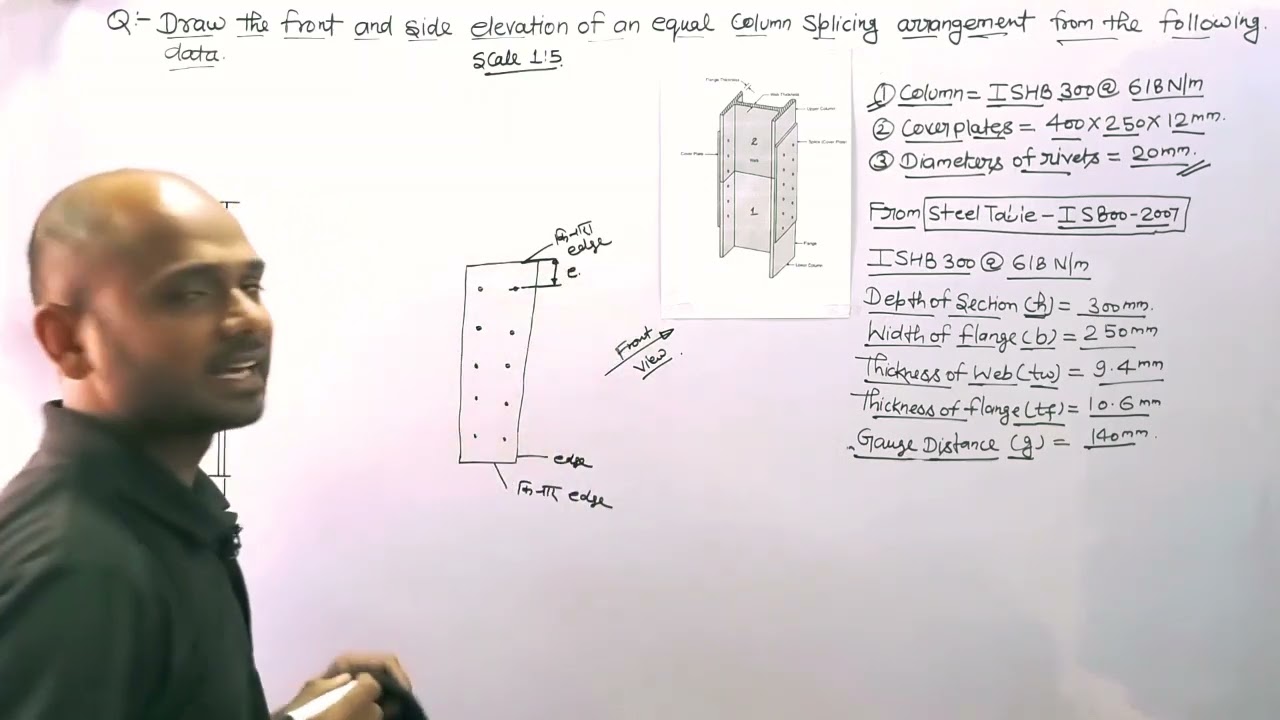 Q:- Draw the front and side elevation of an equal column splicing arrangement from the following
data.
Scale 1:5
Flange Thickness
Web Thickness
Upper Column
Splice (Cover Plate)
Cover Plate
2
Web
1
Flange
Lower Column
① Column = ISHB 300 @ 618 N/m
② Coverplates = 400 × 250 × 12 mm.
③ Diameters of rivets = 20 mm.
From Steel Table - IS800-2007
ISHB 300 @ 618 N/m
Depth of Section (h) = 300 mm.
Width of flange (b) = 250 mm
Thickness of Web (tw) = 9.4 mm
Thickness of flange (tf) = 10.6 mm
Gauge Distance (g) = 140 mm.
edge
e.
Front
View
edge
edge